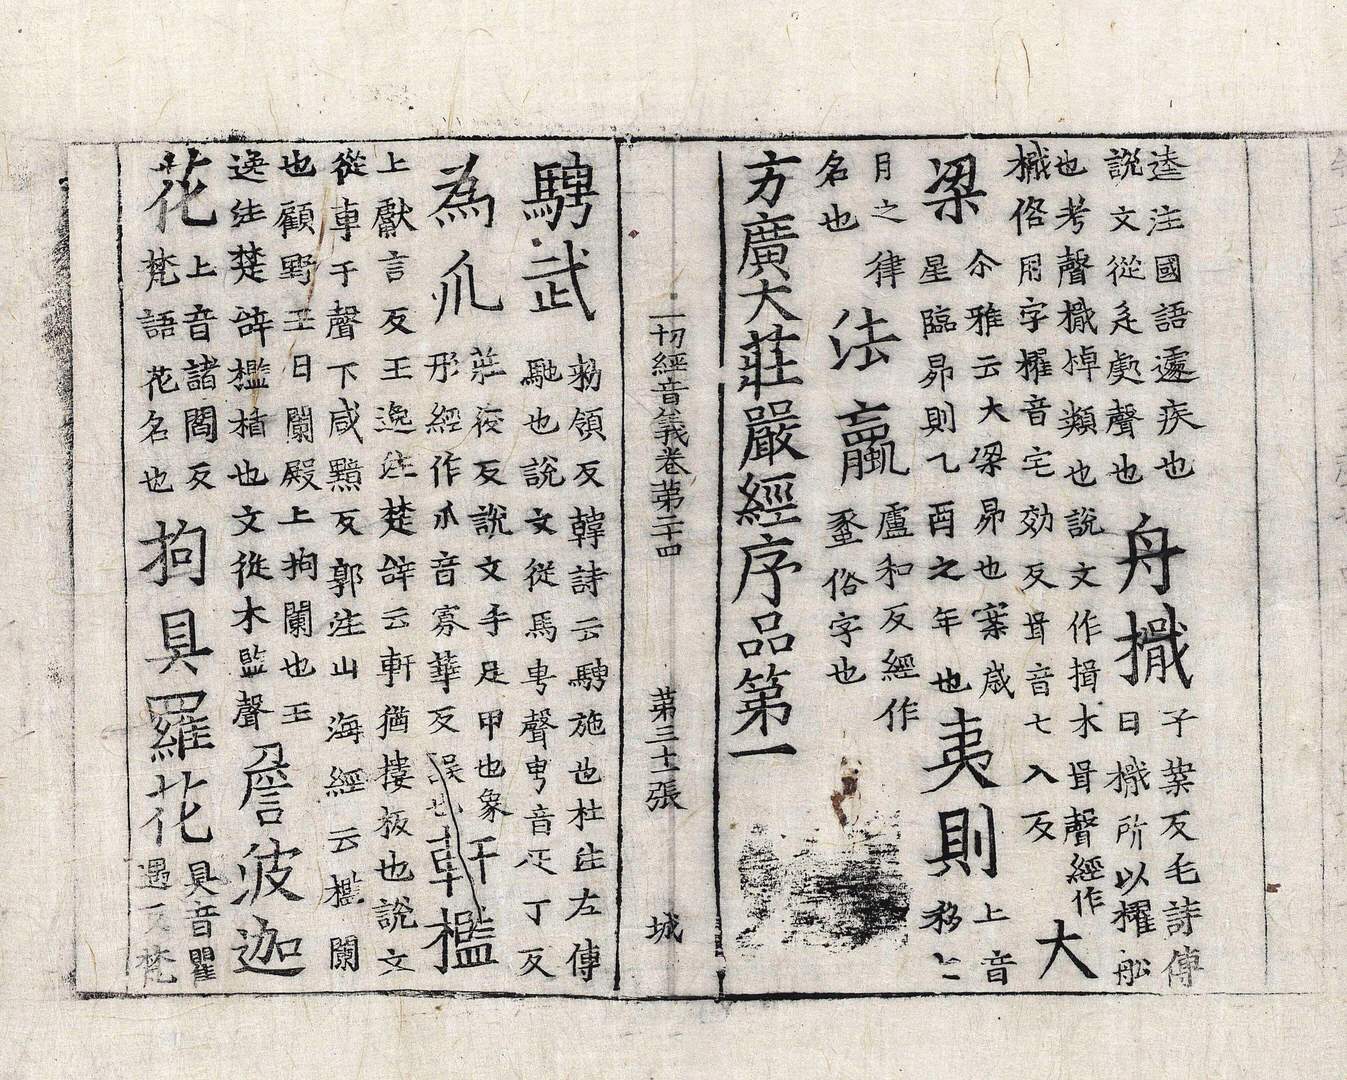 逵注國語遽疾也
說文從辵豦聲也
舟檝
子葉反毛詩傳
曰檝所以櫂舩
也考聲檝棹類也說文作揖木咠聲經作
檝俗用字櫂音宅効反咠音七入反
大
梁
尒雅云大梁昴也案歳
星臨昴則乙酉之年也
夷則
上音
移七
月之律
名也
法蠃
盧和反經作
蠡俗字也
方廣大莊嚴經序品第一
一切經音義卷第二十四 第三十一張 城
騁武
勑領反韓詩云騁施也杜注左傳
馳也說文從馬甹聲甹音匹丁反
為爪
莊狡反說文手足甲也象
形經作爪音寡華反誤也
軒檻
上獻言反王逸注楚辭云軒猶樓板也說文
從車干聲下咸黤反郭注山海經云檻闌
也顧野王曰闌殿上拘闌也王
逸注楚辭檻楯也文從木監聲
詹波迦
花
上音諸閻反
梵語花名也
拘具羅花
具音瞿
遇反梵